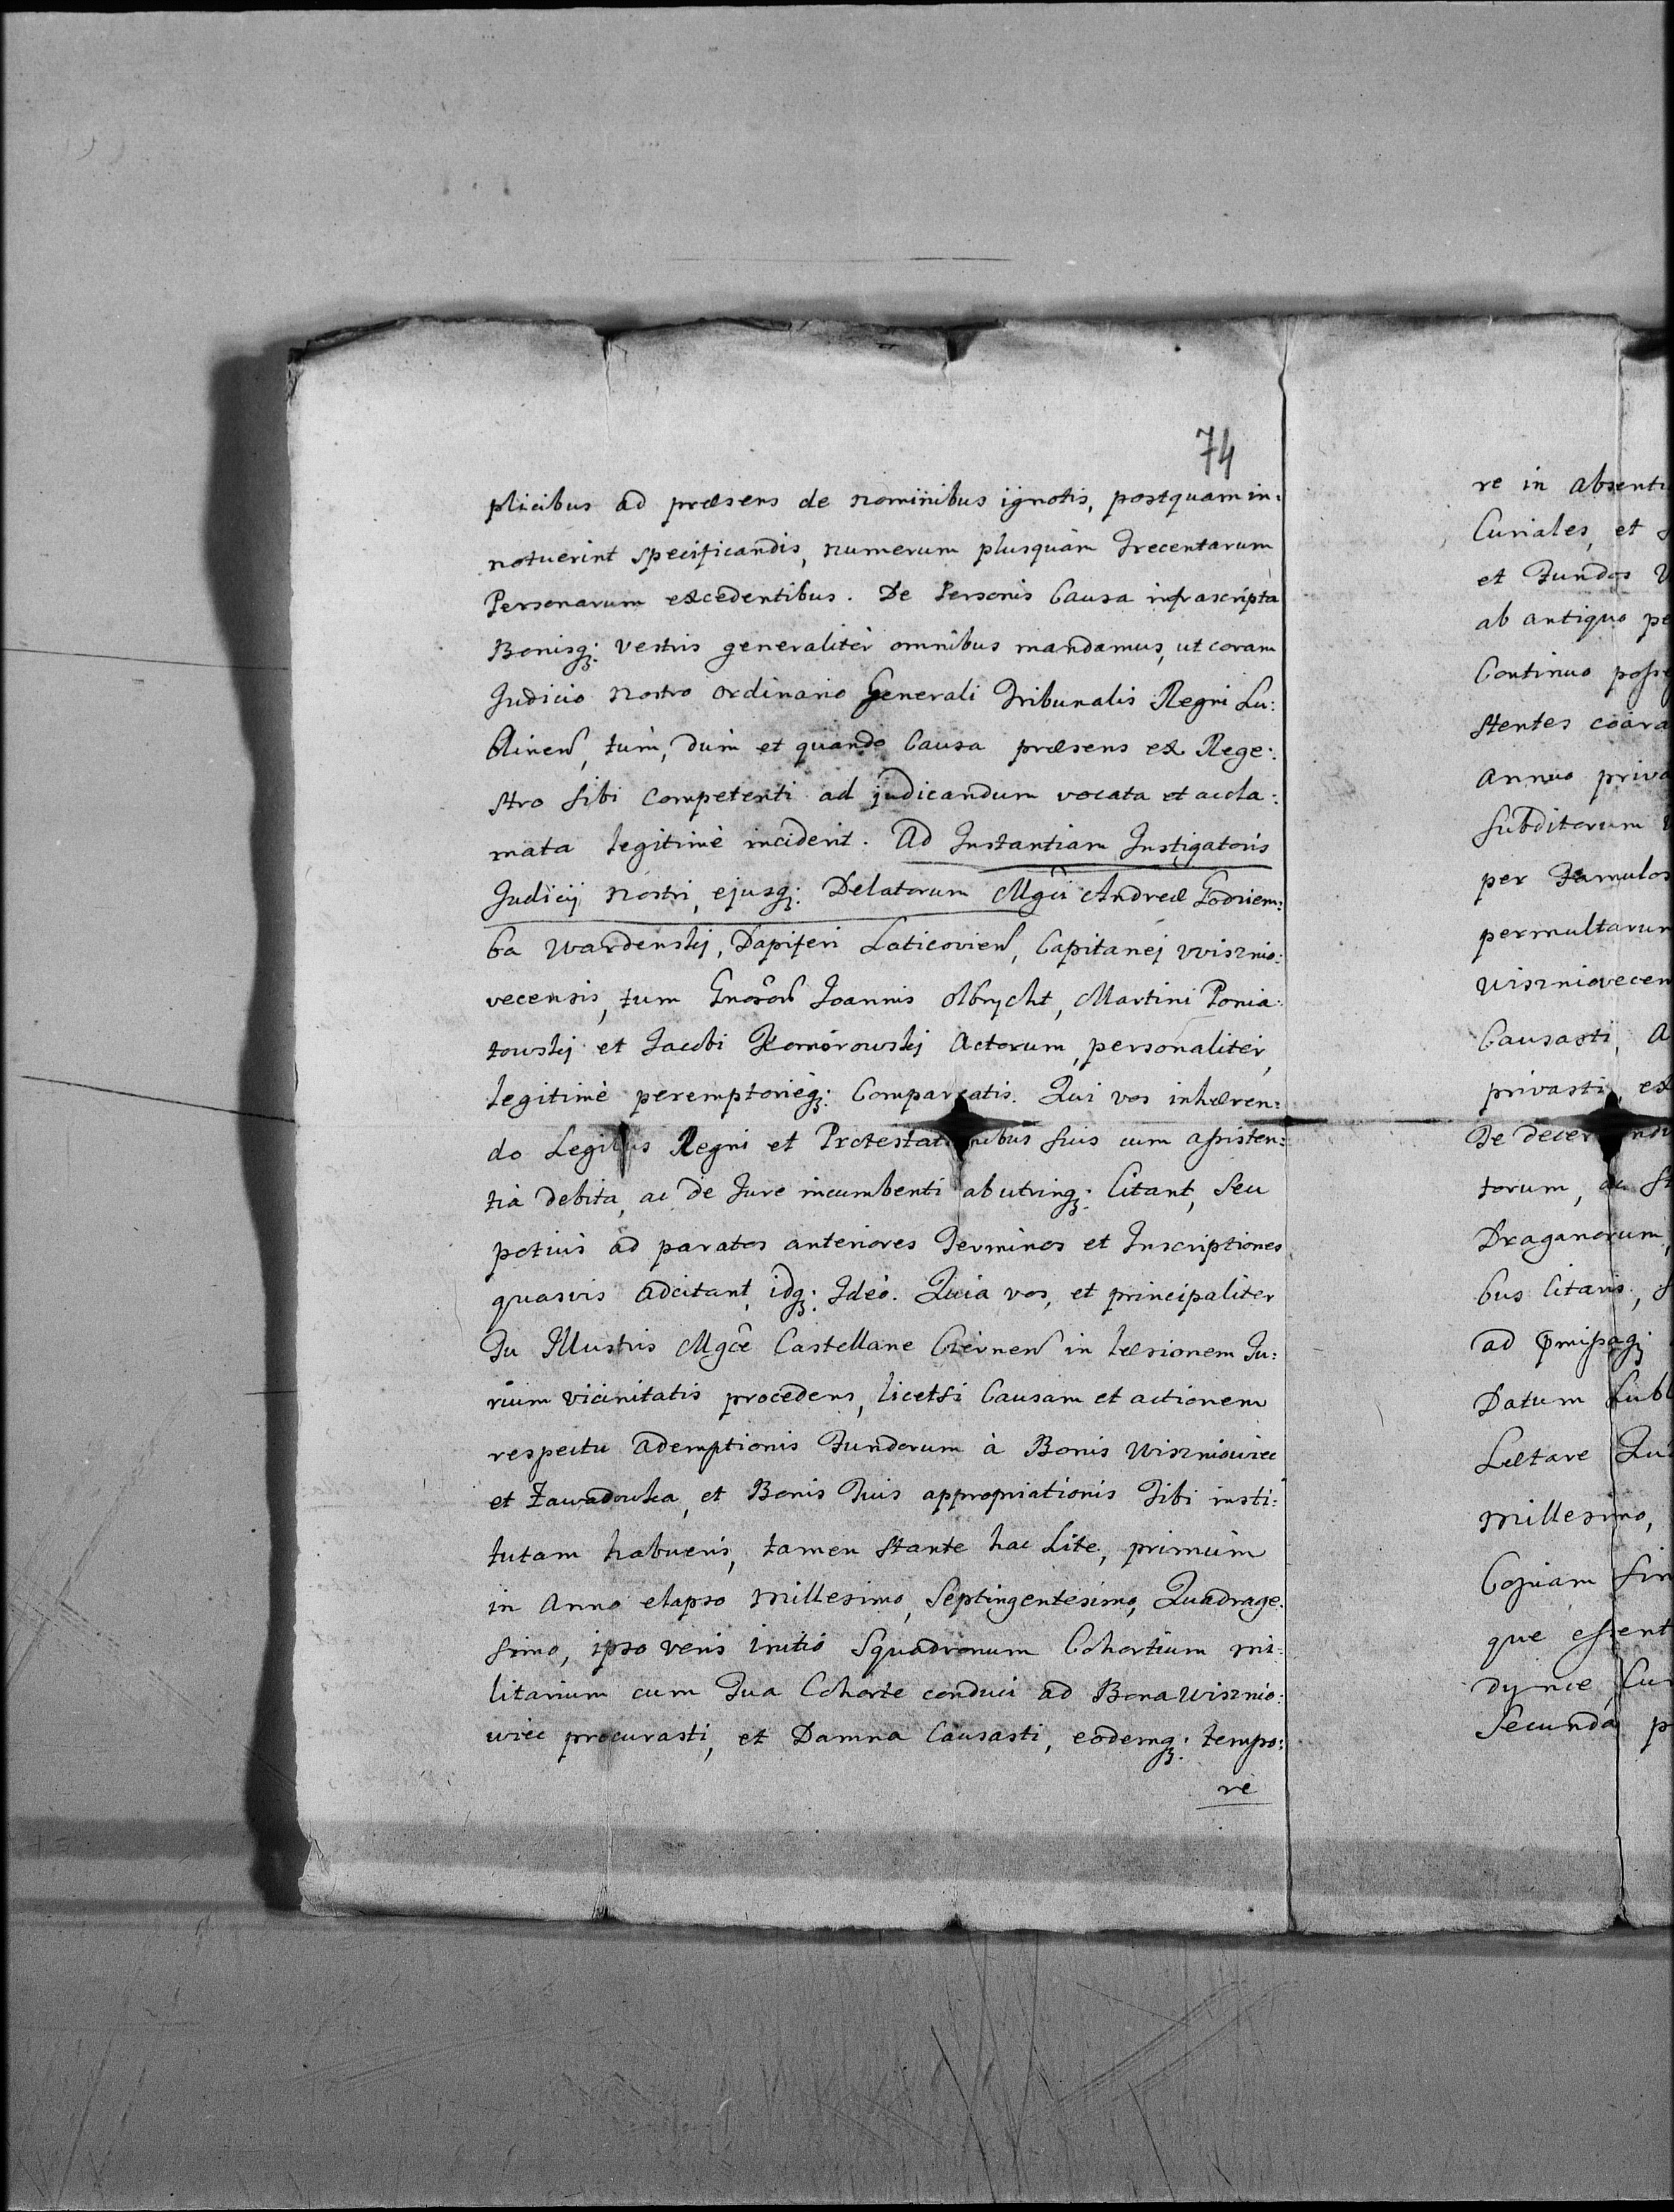 74
plicibus ad præsens de nominibus ignotis, postquam in:
notuerint specificandis, numerum plusquàm Trecentarum
Personarum excedentibus. De Personis Causa infrascripta
Bonisq; vestris generalitèr omnibus mandamus, ut coram
Judicio nostro ordinario Generali Tribunalis Regni Lu:
blinen, tùm, dum et quando Causa præsens ex Rege:
stro sibi competenti ad judicandum vocata et accla:
mata legitimè inciderit. Ad Instantiam Instigatoris
Judicij nostri, ejusq; Delatorum Mgci Andreæ Godziem:
ba Wardenskj, Dapiferi Laticovien, Capitanej Wisznio:
vecensis, tum Gnosorū Joannis Olbrycht, Martini Ponia:
towskj et Jacobi Komorowskj Actorum, personalitèr,
legitimè peremptorièq; Compareatis. Qui vos inhæren:
do Legibus Regni et Protestationibus suis cum assisten:
tià debita, ac de Jure incumbenti ab utrinq; Citant, seu
potiùs ad paratos anteriores Terminos et Inscriptiones
quasvis adcitant, idq; Ideò. Quia vos, et principaliter
Tu Illustris Mgce Castellane Czernen in læsionem Ju:
rium vicinitatis procedens, licetsi Causam et actionem
respectu ademptionis Fundorum à Bonis Wiszniowiec
et Zawadowka, et Bonis Tuis appropriationis Tibi insti:
tutam habueris, tamen stante hac Lite, primùm
in Anno elapso Millesimo, Septingentesimo, Quadrage:
simo, ipso veris initio Squadronum Cohortium mi:
litarium cum Tua Cohorte conduci ad Bona Wisznio:
wiec procurasti, et Damna Causasti, eodemq; tempo:
re
re in absenti
Curiales, et
et Fundos
ab antiquo pe
Continuo posse
stentes coâra
Annuo priva
Subditorum
per Famulos
permultarum
Wisznioveцen
Causasti, a
privasti, ex
De decernendi
torum, ac st
Draganorum,
bus Citaris, s
ad pmissaq;
Datum Lubl
Lætare Qu
Millesimo,
Copiam sim
que essent
dynce, Cur
Secunda p